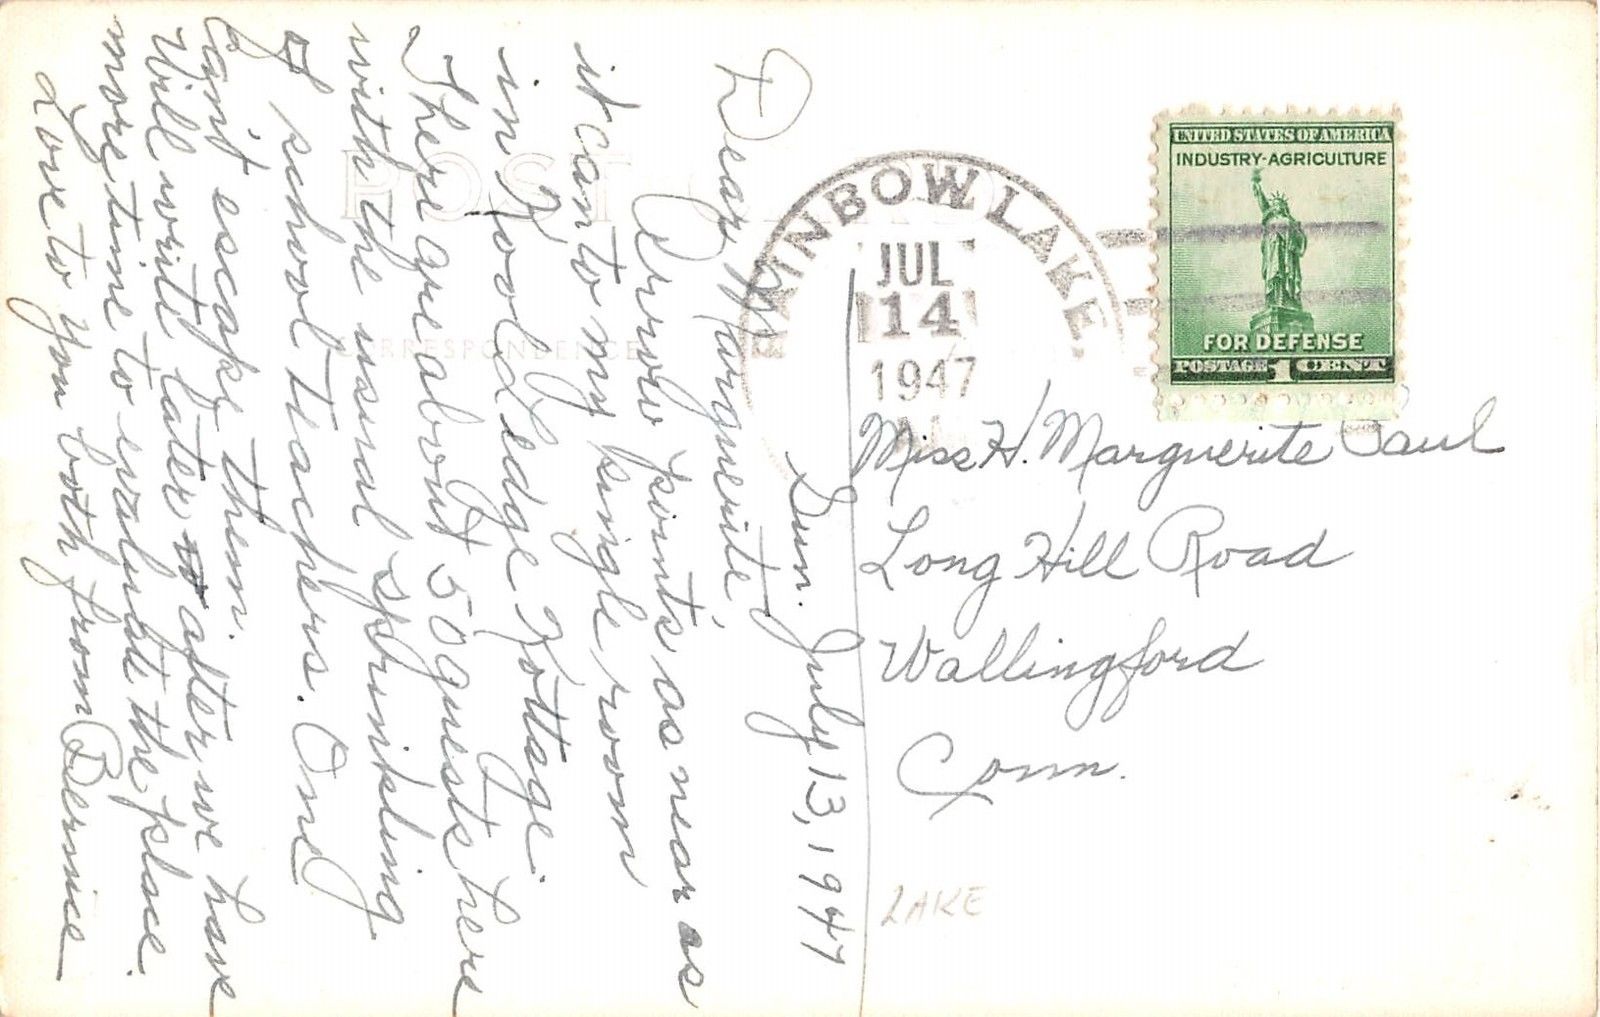 Sun. July 13, 1947
Dear Marguerite,
Arrow points as near as
it can to my single room
in Kool Ledge Kottage.
There are about 50 guests here
with the usual sprinkling
of school teachers. One
can't escape them.
Will write later after we have
more time to evaluate the place.
Love to you both from Bernice
POST CARD
CORRESPONDENCE
RAINBOW LAKE.
JUL
14
1947
UNITED STATES OF AMERICA
INDUSTRY-AGRICULTURE
FOR DEFENSE
POSTAGE 1 CENT
Miss H. Marguerite Paul
Long Hill Road
Wallingford
Conn.
LAKE